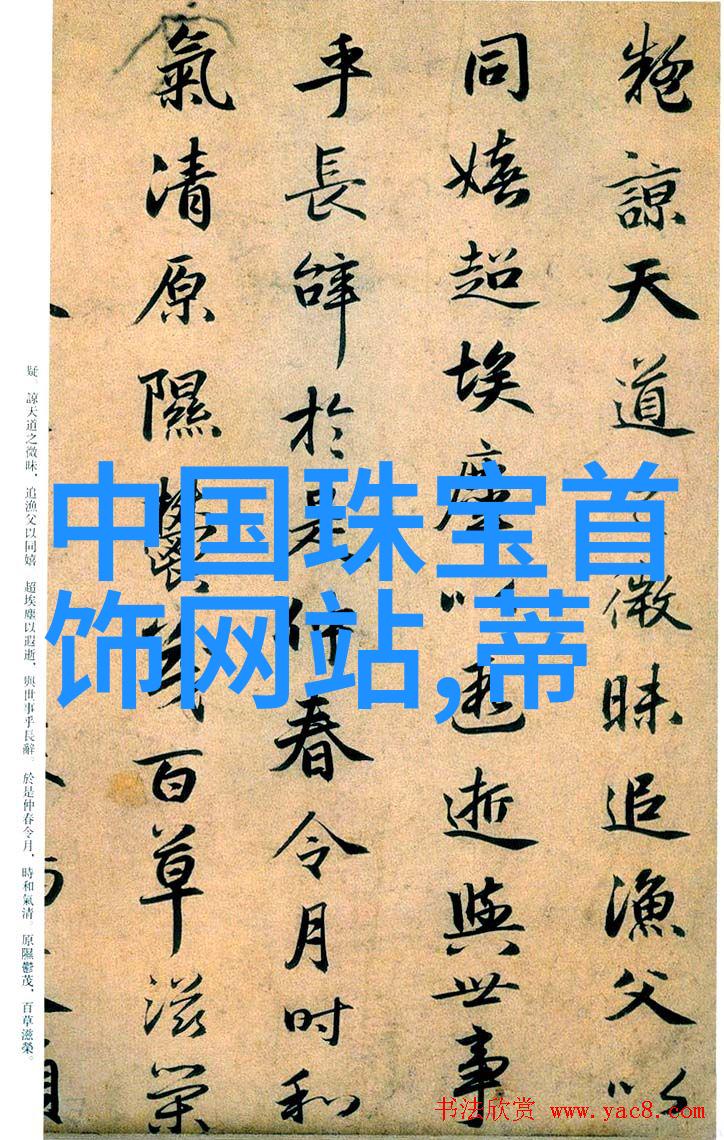 疑諒天道之微昧追漁父以
同嬉超埃塵以遐逝與世事
乎長辭於是仲春令月时和
氣清原隰鬱茂百草滋榮
疑。諒天道之微昧，追漁父以同嬉 超埃塵以遐逝，與世事乎長辭。於是仲春令月，時和氣清。原隰鬱茂，百草滋榮。
中国珠宝首
饰网站,蒂
书法欣赏 www.yac8.com